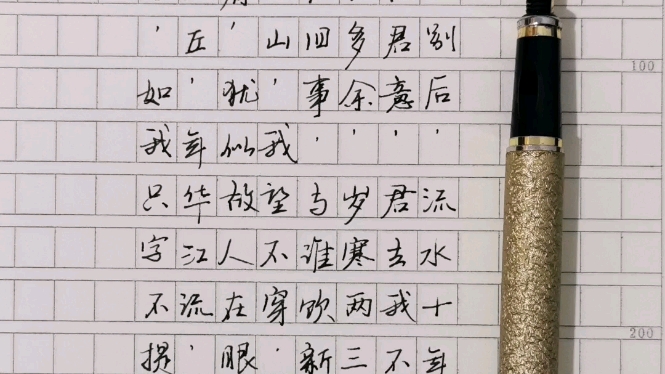 别后，流水十年
君意，君去我不
多余，岁寒两三
旧事，与谁饮新
山，我望不穿，
，犹似故人在眼
丘，年华江流，
，如我只字不提
100
200